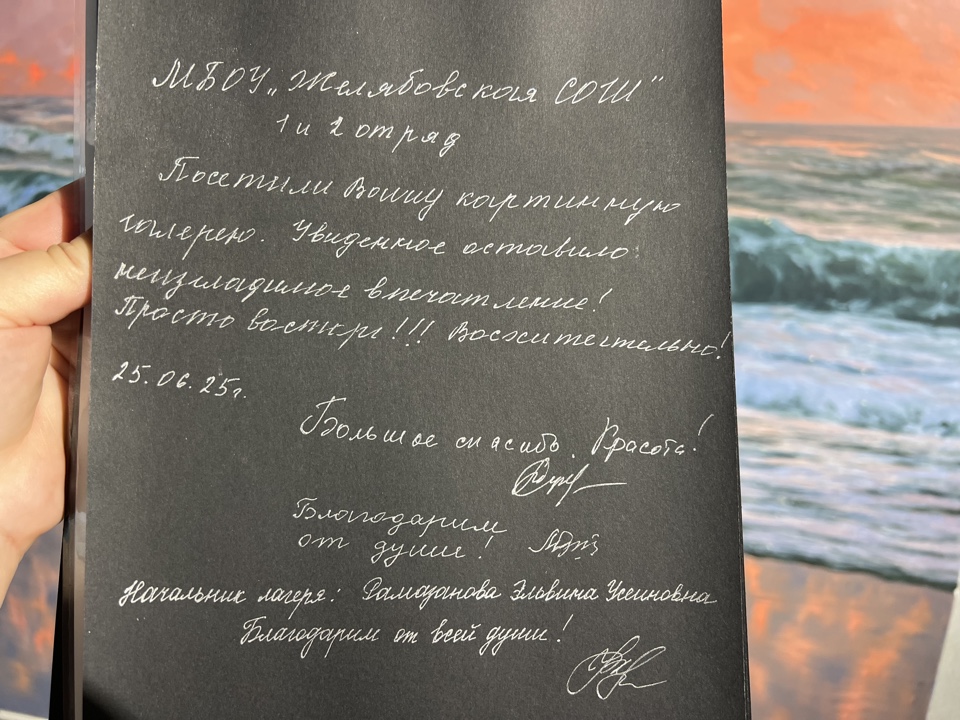 МБОУ „Желябовская СОШ"
1 и 2 отряд
Посетили Вашу картинную
галерею. Увиденное оставило
неизгладимое впечатление!
Просто восторг!!! Восхитительно!
25.06.25г.
Большое спасибо. Красота!
Благодарим
от души!
Начальник лагеря: Рамазанова Эльвина Усеиновна
Благодарим от всей души!